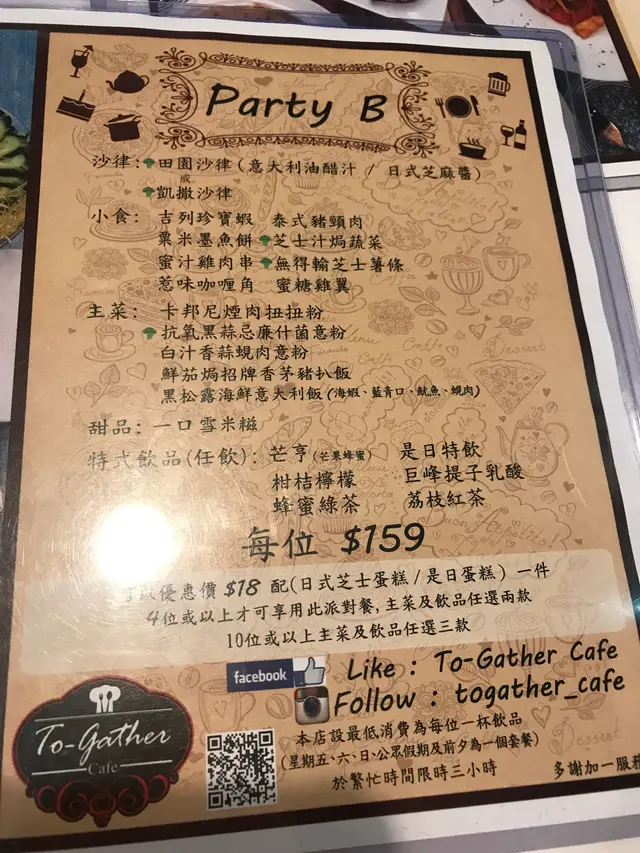 Party B
沙律: 田園沙律(意大利油醋汁 / 日式芝麻醬)
或
凱撒沙律
小食: 吉列珍寶蝦 泰式豬頸肉
粟米墨魚餅 芝士汁焗蔬菜
蜜汁雞肉串 無得輸芝士薯條
惹味咖喱角 蜜糖雞翼
主菜: 卡邦尼煙肉扭扭粉
抗氧黑蒜忌廉什菌意粉
白汁香蒜蜆肉意粉
鮮茄焗招牌香茅豬扒飯
黑松露海鮮意大利飯(海蝦、藍青口、魷魚、蜆肉)
甜品: 一口雪米糍
特式飲品(任飲): 芒亨(芒果蜂蜜) 是日特飲
柑桔檸檬 巨峰提子乳酸
蜂蜜綠茶 荔枝紅茶
每位 $159
以優惠價 $18 配(日式芝士蛋糕/是日蛋糕) 一件
4位或以上才可享用此派對餐,主菜及飲品任選兩款
10位或以上主菜及飲品任選三款
facebook Like : To-Gather Cafe
Follow : togather_cafe
To-Gather
Cafe
本店設最低消費為每位一杯飲品
(星期五、六、日、公眾假期及前夕為一個套餐)
於繁忙時間限時三小時 多謝加一服務